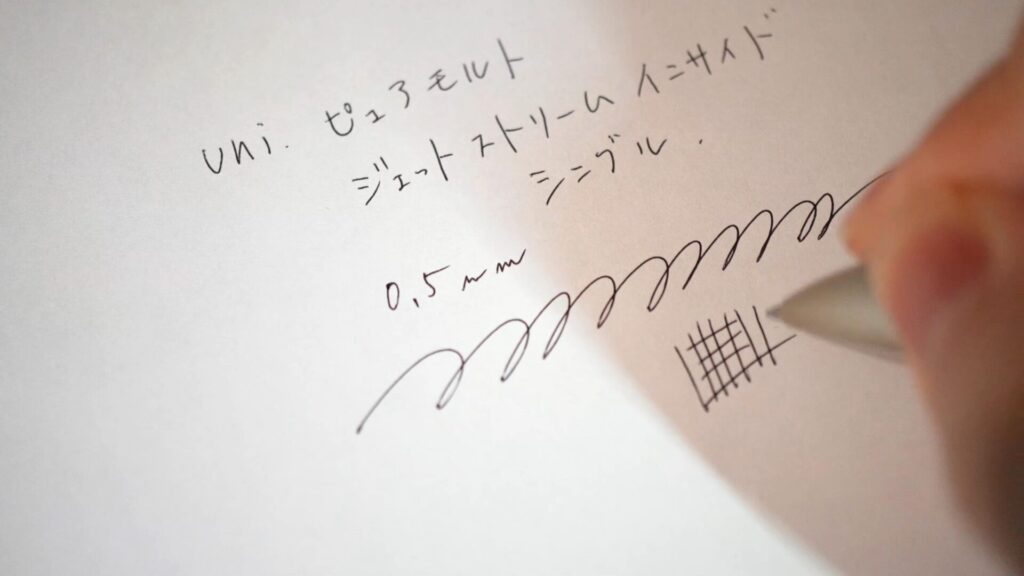 uni. ピュアモルト
ジェットストリーム インサイド
シングル.
0.5mm